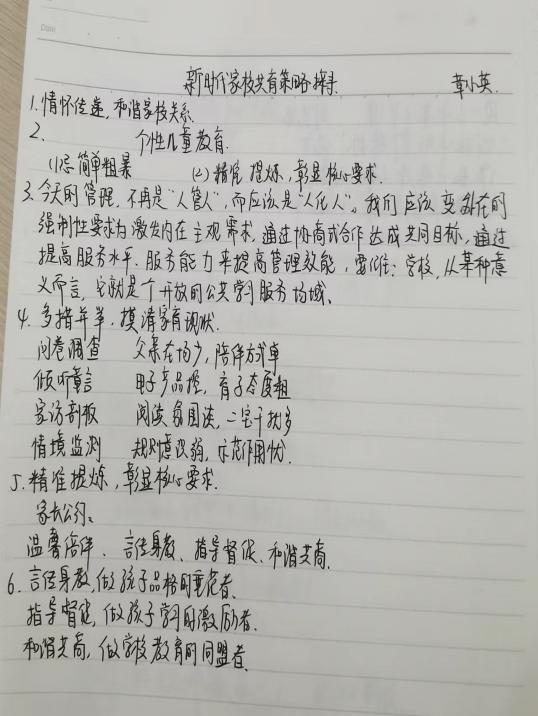 Date
新时代家校共育策略探寻 章小英
1.情怀传递，和谐家校关系.
2. 个性儿童教育.
(1)忌简单粗暴 (2)精准提炼，彰显核心要求.
3.今天的管理，不再是“人管人”，而应该是“人化人”。我们应该变外在的
强制性要求为激发内在主观需求，通过协商式合作达成共同目标，通过
提高服务水平、服务能力来提高管理效能，要记住：学校，从某种意
义而言，它就是个开放的公共学习服务场域。
4.多措并举，摸清家育现状.
问卷调查 父亲在场少，陪伴方式单
倾听童言 电子产品控，育子态度粗
家访剖板 阅读氛围淡，二宝干扰多
情境监测 规则意识弱，示范作用忧.
5.精准提炼，彰显核心要求.
家长公约：
温馨陪伴、言传身教、指导督促、和谐共商.
6.言传身教，做孩子品格的垂范者.
指导督促，做孩子学习的激励者.
和谐共商，做学校教育的同盟者.